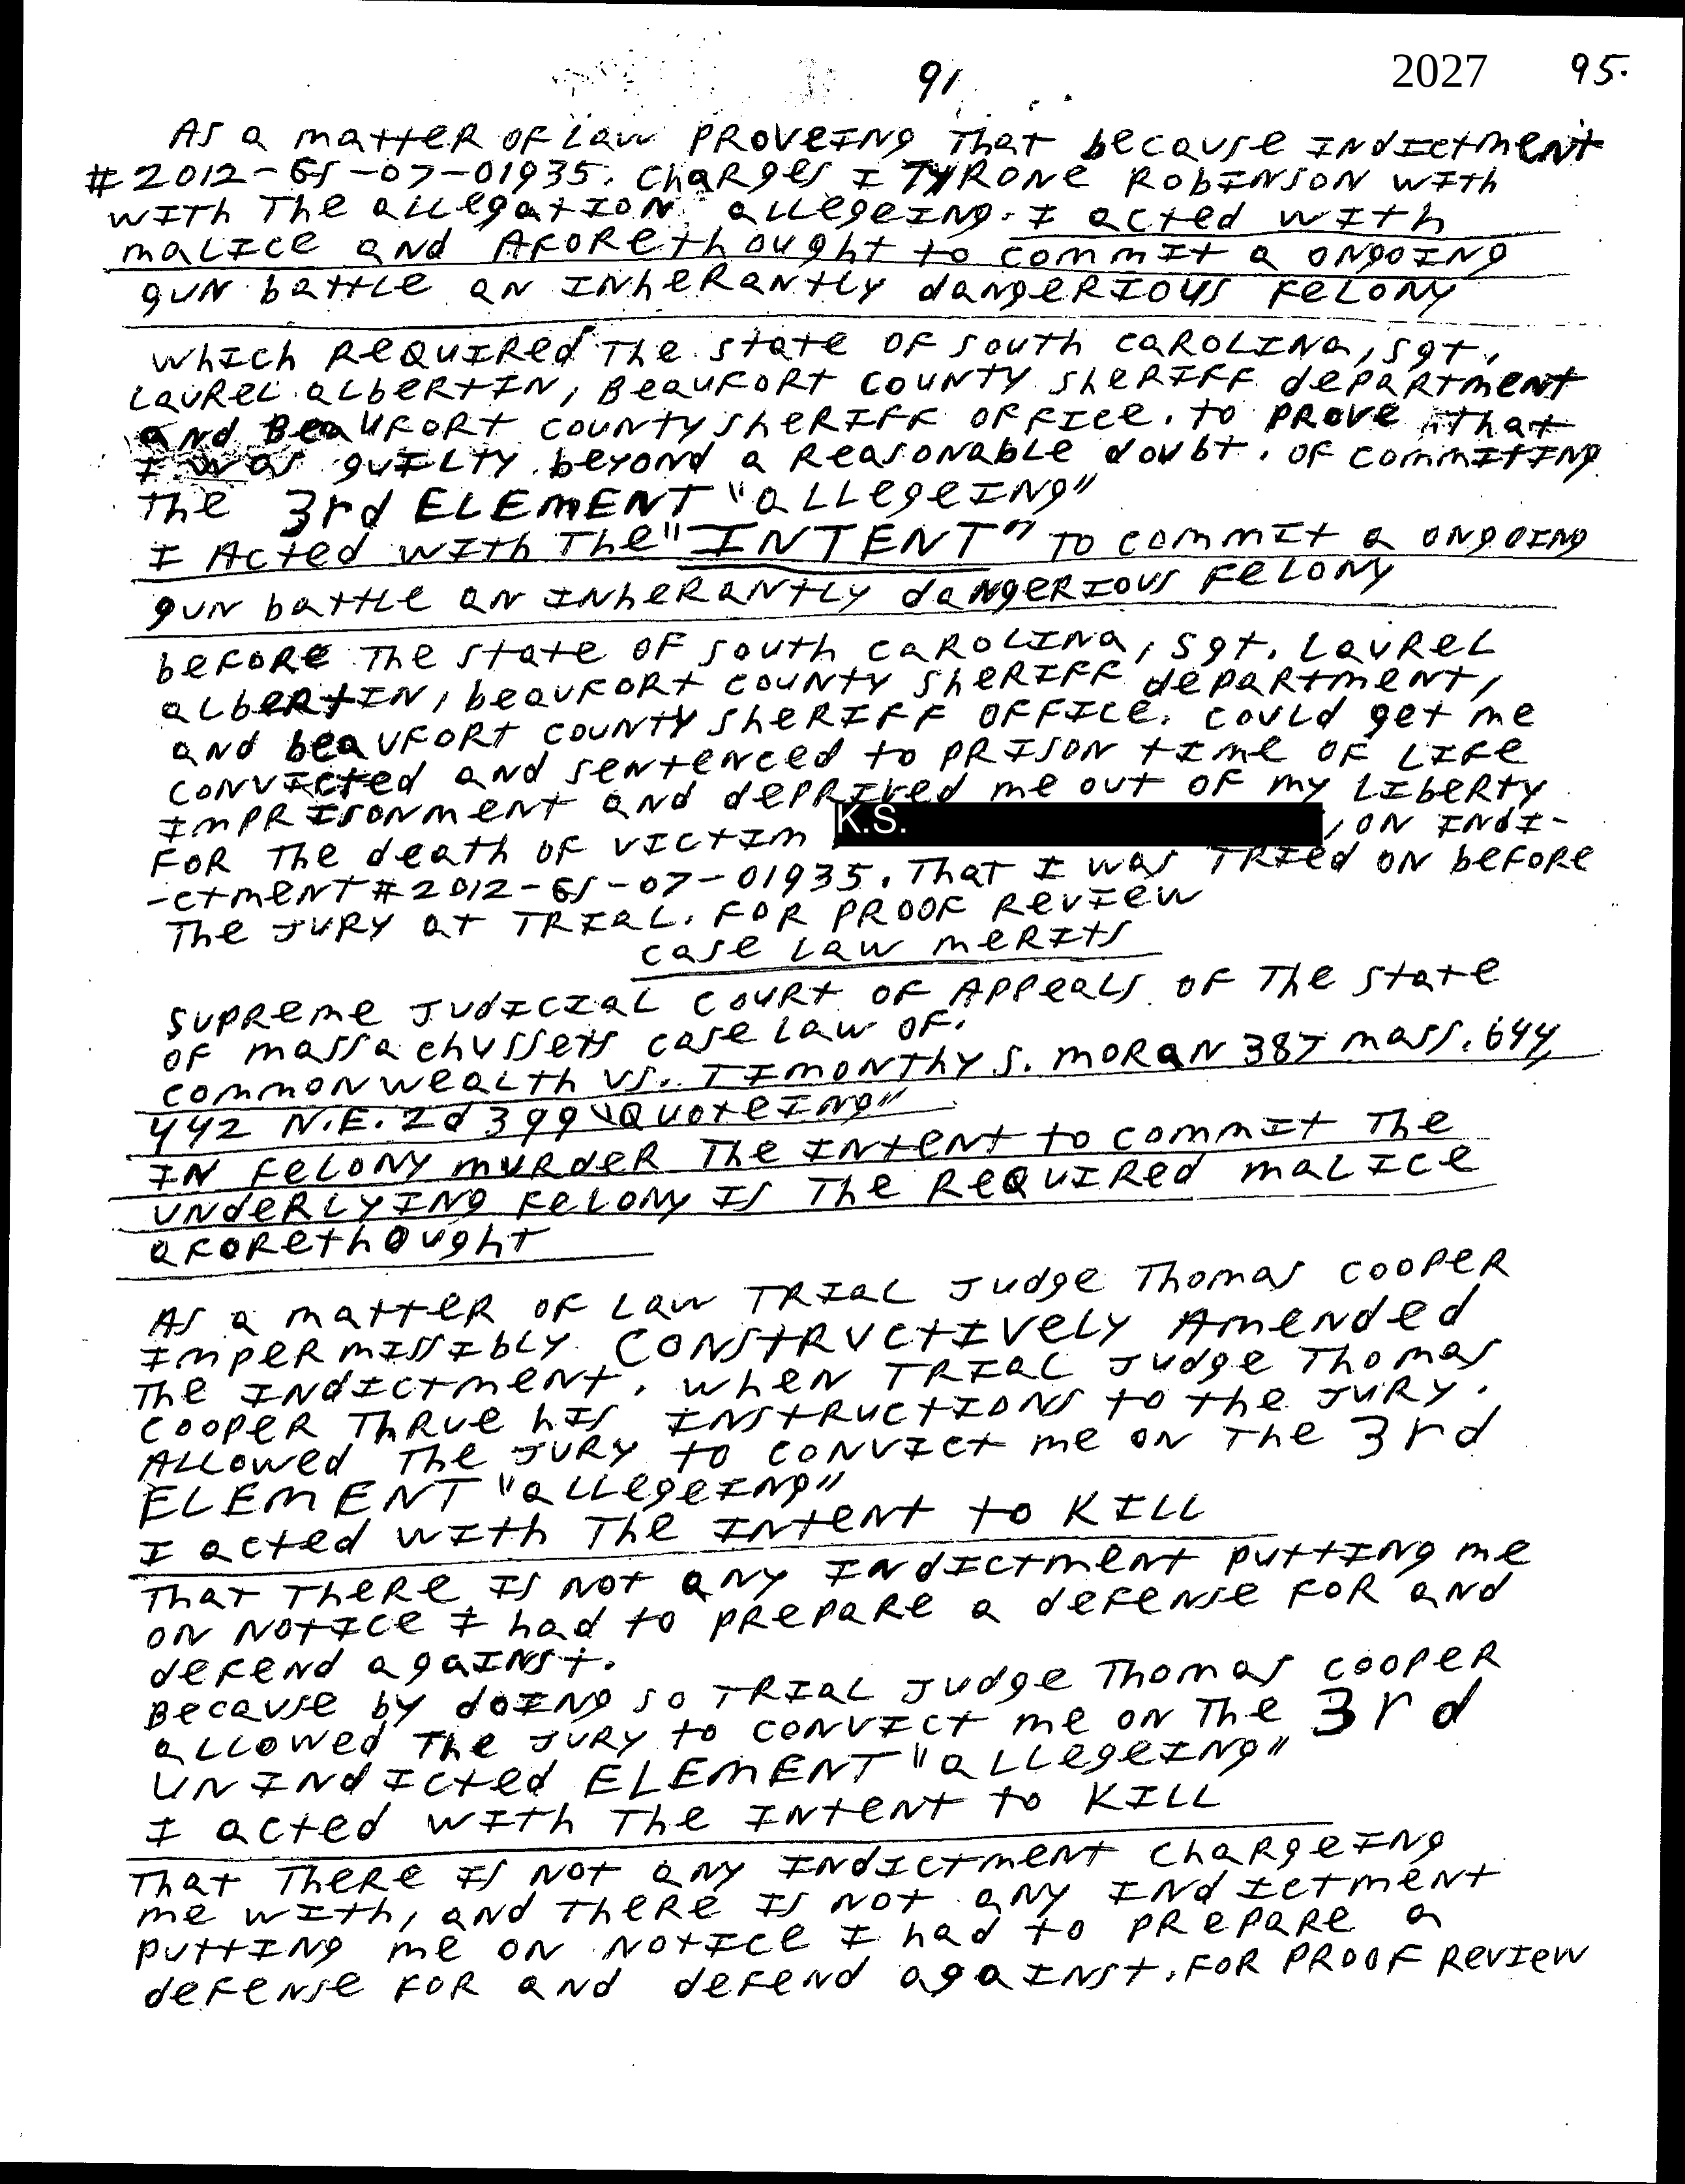 91 2027 95.
As a matter of law proveing that because indictment
#2012-GS-07-01935. charges I Tyrone Robinson with
with the allegation allegeing. I acted with
malice and aforethought to commit a ongoing
gun battle an inherantly dangerious felony
which required the state of south carolina, sgt.
Laurel albertin, Beaufort county sheriff department
and Beaufort county sheriff office. to prove that
I was guilty beyond a reasonable doubt. of commiting
the 3rd ELEMENT "allegeing"
I Acted with the "INTENT" to commit a ongoing
gun battle an inherantly dangerious felony
before the state of south carolina, sgt. Laurel
albertin, beaufort county sheriff department,
and beaufort county sheriff office. could get me
convicted and sentenced to prison time of life
imprisonment and deprived me out of my liberty
for the death of victim K.S. , on indi-
-ctment #2012-GS-07-01935. That I was tried on before
the jury at trial. for proof review
case law merits
supreme judicial court of appeals of the state
of massachussets case law of.
commonwealth vs. Timonthy S. moran 387 mass. 644,
442 N.E. 2d 399 "Quoteing"
in felony murder the intent to commit the
underlying felony is the required malice
aforethought
As a matter of law trial judge Thomas cooper
impermissibly constructively Amended
the indictment. when trial judge Thomas
cooper thrue his instructions to the jury.
Allowed the jury to convict me on the 3rd
ELEMENT "allegeing"
I acted with the intent to kill
that there is not any indictment putting me
on notice I had to prepare a defense for and
defend against.
Because by doing so trial judge Thomas cooper
allowed the jury to convict me on the 3rd
unindicted ELEMENT "allegeing"
I acted with the intent to kill
that there is not any indictment chargeing
me with, and there is not any indictment
putting me on notice I had to prepare a
defense for and defend against. for proof review